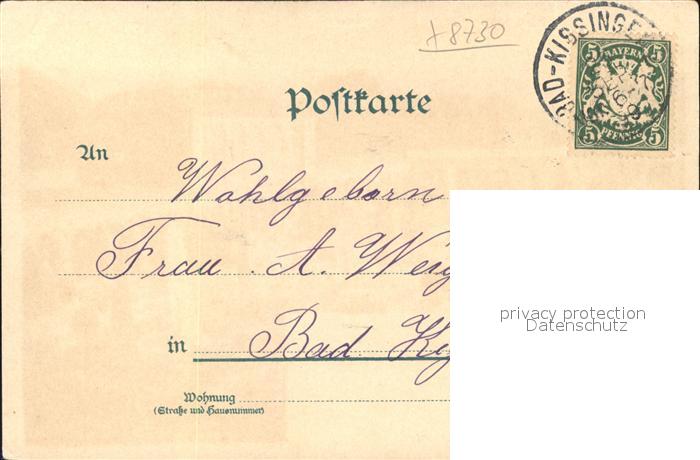 +8730
BAD-KISSINGE
5 BAYERN 5
5 PFENNIG 5
Poſtkarte
An
Wohlgeborn
Frau . A. Weig
privacy protection
Datenschutz
in Bad Ky
Wohnung
(Straße und Hausnummer)